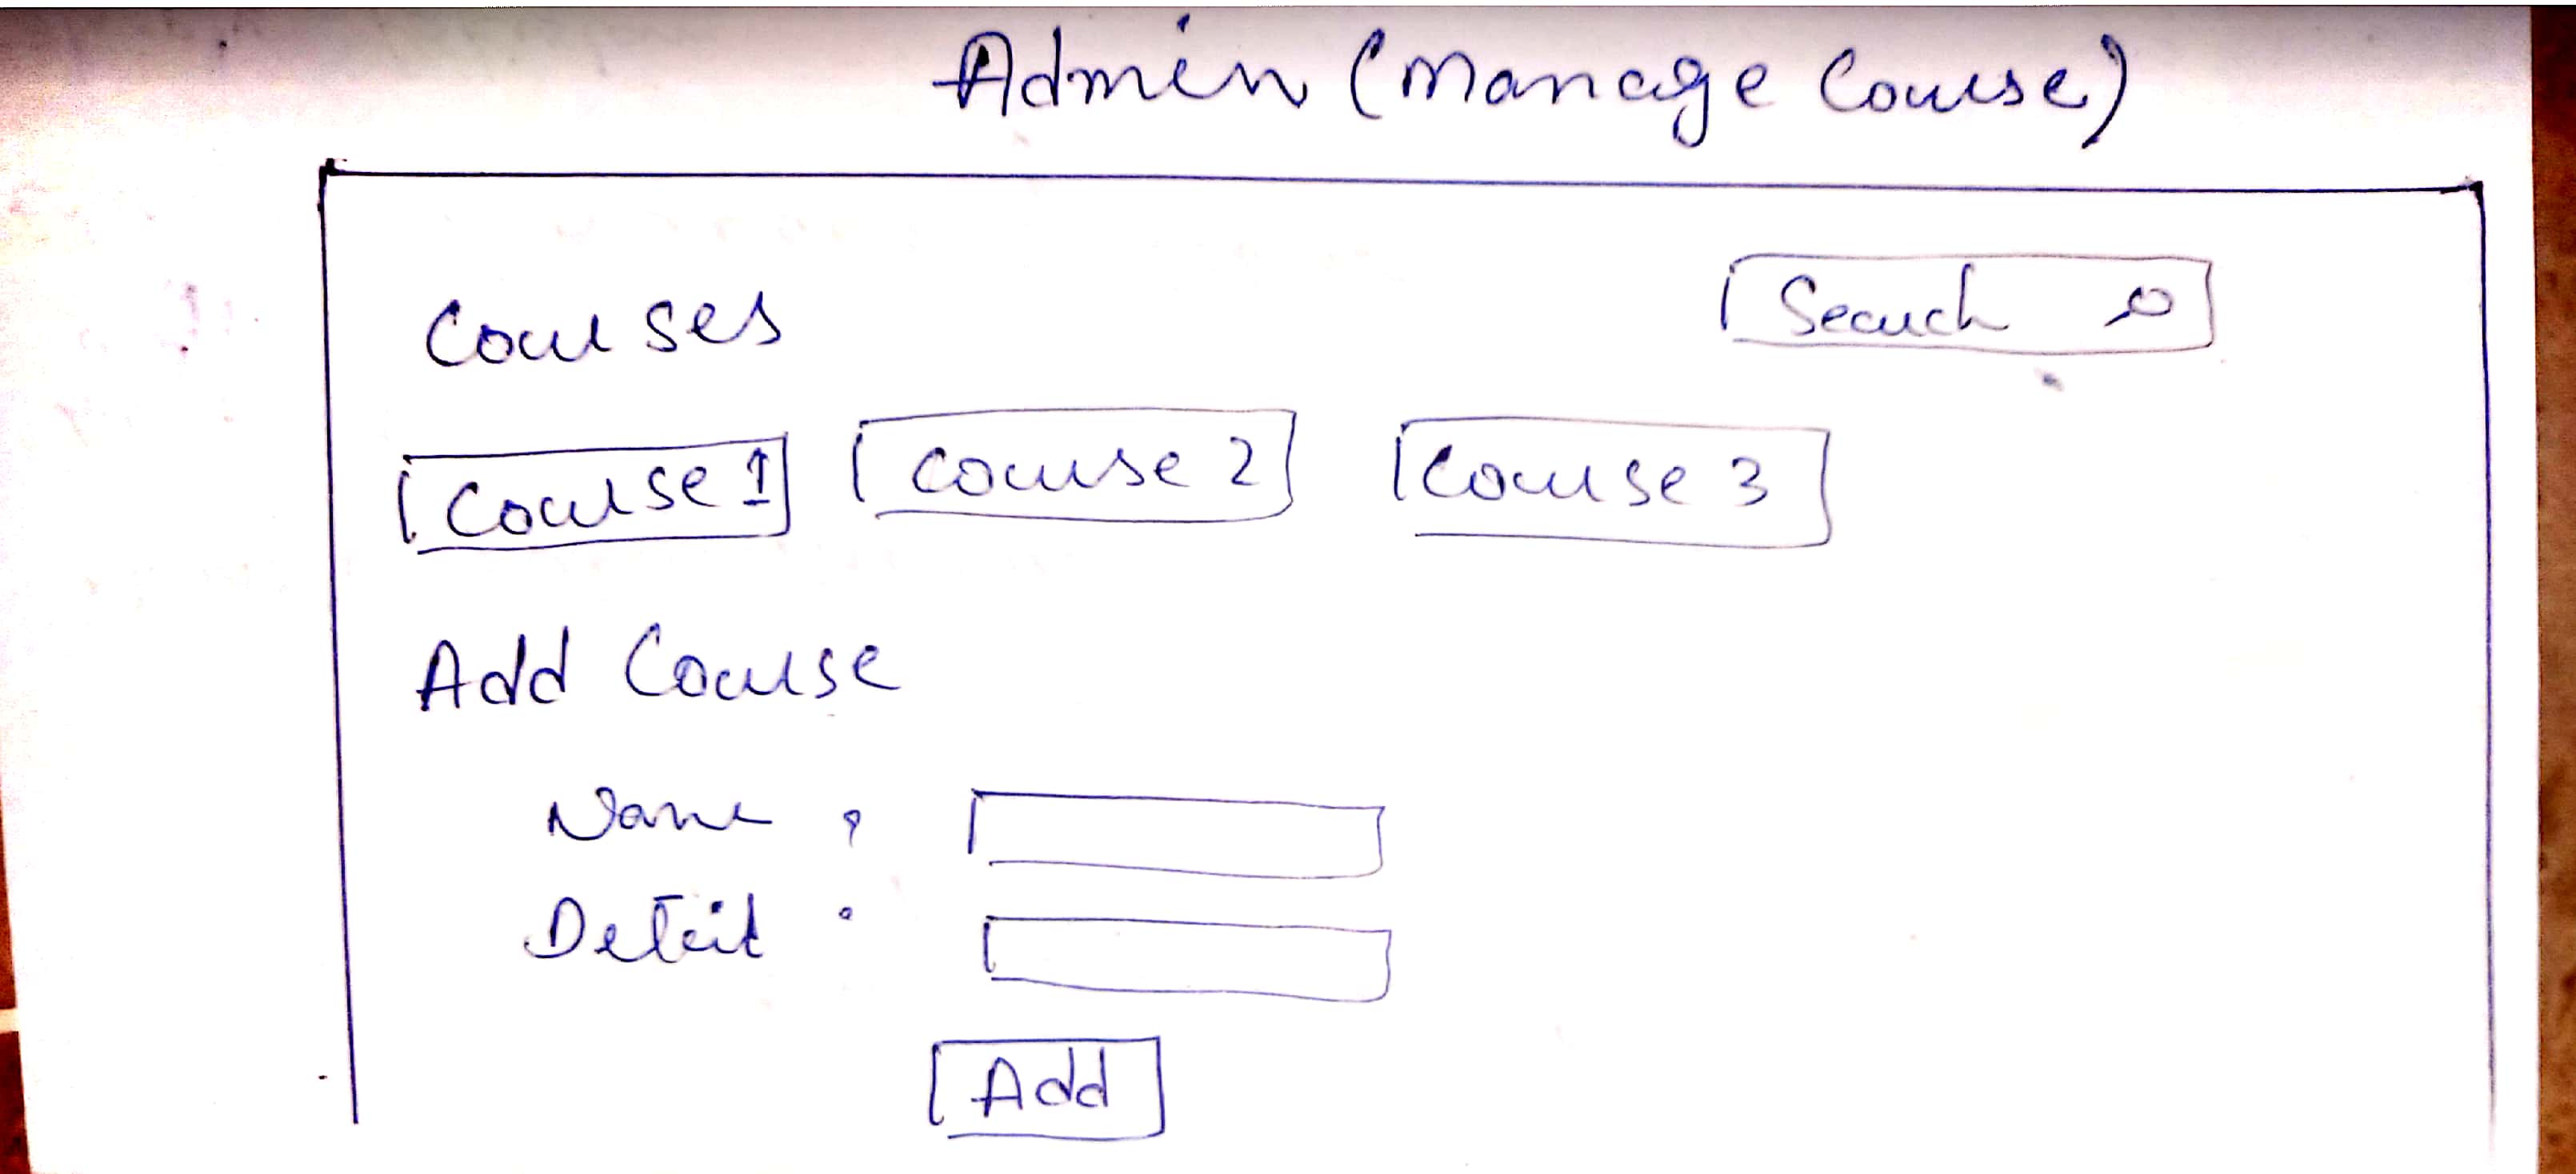 Admin (Manage Course)
Courses
Search
Course 1
Course 2
Course 3
Add Course
Name :
Detail :
Add